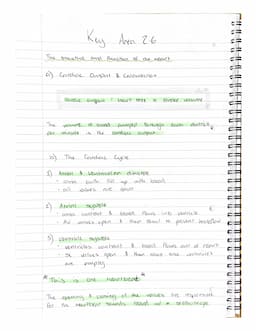 Key Area 2.6
The structure and function of the heart
a) Cardiac Output & Calculation
cardiac output = heart rate x stroke volume
The volume of blood pumped through each ventricle
per minute is the cardiac output.
b) The Cardiac Cycle
1) Atrial & Ventricular diastole
- atria both fill up with blood
- all valves are shut
2) Atrial systole
- atria contract & blood flows into ventricle
- AV valves open & then shut to prevent backflow
3) Ventricular systole
- ventricles contract & blood flows out of heart
- SL valves open & then close once ventricles
are empty.
*This is one heartbeat*
The opening & closing of the valves are responsible
for the heartbeat sounds heard w/ a stethoscope